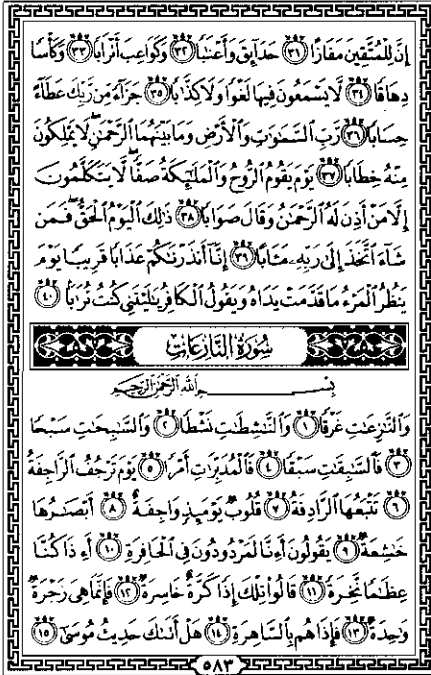 إِنَّ لِلْمُتَّقِينَ مَفَازًا ٣١ حَدَآئِقَ وَأَعْنَٰبًا ٣٢ وَكَوَاعِبَ أَتْرَابًا ٣٣ وَكَأْسًا
دِهَاقًا ٣٤ لَّا يَسْمَعُونَ فِيهَا لَغْوًا وَلَا كِذَّٰبًا ٣٥ جَزَآءً مِّن رَّبِّكَ عَطَآءً
حِسَابًا ٣٦ رَّبِّ ٱلسَّمَٰوَٰتِ وَٱلْأَرْضِ وَمَا بَيْنَهُمَا ٱلرَّحْمَٰنِ لَا يَمْلِكُونَ
مِنْهُ خِطَابًا ٣٧ يَوْمَ يَقُومُ ٱلرُّوحُ وَٱلْمَلَٰٓئِكَةُ صَفًّا لَّا يَتَكَلَّمُونَ
إِلَّا مَنْ أَذِنَ لَهُ ٱلرَّحْمَٰنُ وَقَالَ صَوَابًا ٣٨ ذَٰلِكَ ٱلْيَوْمُ ٱلْحَقُّ فَمَن
شَآءَ ٱتَّخَذَ إِلَىٰ رَبِّهِۦ مَـَٔابًا ٣٩ إِنَّآ أَنذَرْنَٰكُمْ عَذَابًا قَرِيبًا يَوْمَ
يَنظُرُ ٱلْمَرْءُ مَا قَدَّمَتْ يَدَاهُ وَيَقُولُ ٱلْكَافِرُ يَٰلَيْتَنِى كُنتُ تُرَٰبًا ٤٠
سُورَةُ النَّازِعَاتِ
بِسْمِ اللَّهِ الرَّحْمَٰنِ الرَّحِيمِ
وَٱلنَّٰزِعَٰتِ غَرْقًا ١ وَٱلنَّٰشِطَٰتِ نَشْطًا ٢ وَٱلسَّٰبِحَٰتِ سَبْحًا
٣ فَٱلسَّٰبِقَٰتِ سَبْقًا ٤ فَٱلْمُدَبِّرَٰتِ أَمْرًا ٥ يَوْمَ تَرْجُفُ ٱلرَّاجِفَةُ
٦ تَتْبَعُهَا ٱلرَّادِفَةُ ٧ قُلُوبٌ يَوْمَئِذٍ وَاجِفَةٌ ٨ أَبْصَٰرُهَا
خَٰشِعَةٌ ٩ يَقُولُونَ أَءِنَّا لَمَرْدُودُونَ فِى ٱلْحَافِرَةِ ١٠ أَءِذَا كُنَّا
عِظَٰمًا نَّخِرَةً ١١ قَالُوا۟ تِلْكَ إِذًا كَرَّةٌ خَاسِرَةٌ ١٢ فَإِنَّمَا هِىَ زَجْرَةٌ
وَٰحِدَةٌ ١٣ فَإِذَا هُم بِٱلسَّاهِرَةِ ١٤ هَلْ أَتَىٰكَ حَدِيثُ مُوسَىٰٓ ١٥
٥٨٣